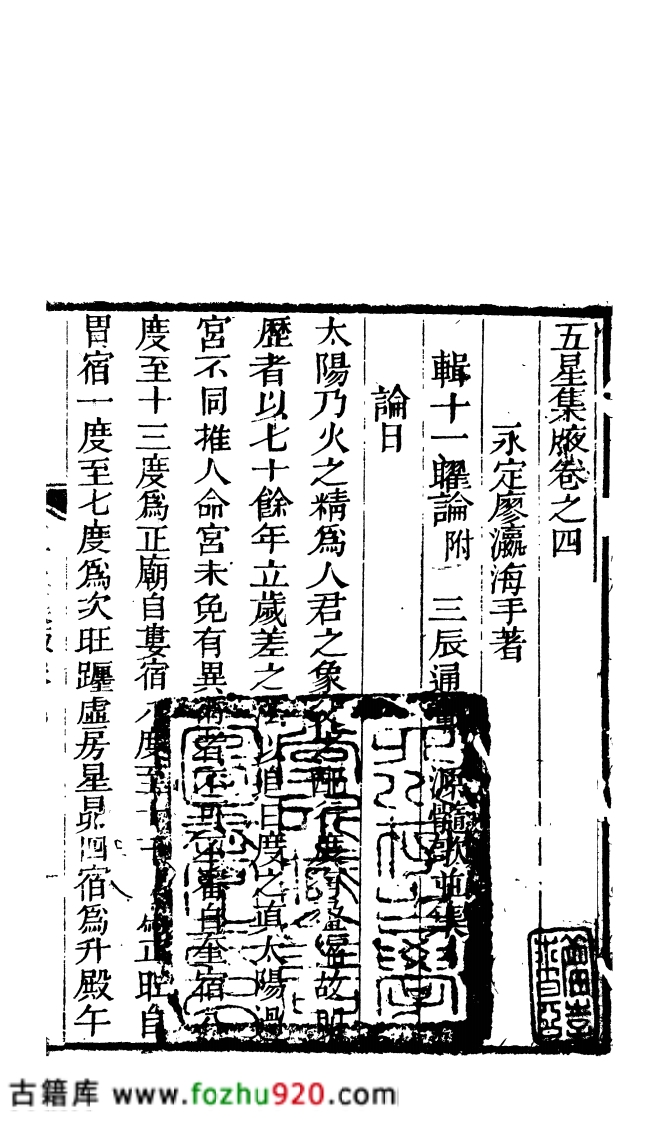 五星集腋卷之四
永定廖瀛海手著
輯十一曜論附 三辰通 源髓歌並集
論日
太陽乃火之精為人君之象 行度有 縮故明
歷者以七十餘年立歲差之 以追日度之真太陽過
宮不同推人命宮未免有異 者不可不審自奎宿八
度至十三度為正廟自婁宿八度至十 正旺自
胃宿一度至七度為次旺躔虛房星昴四宿為升殿午
古籍库 www.fozhu920.com